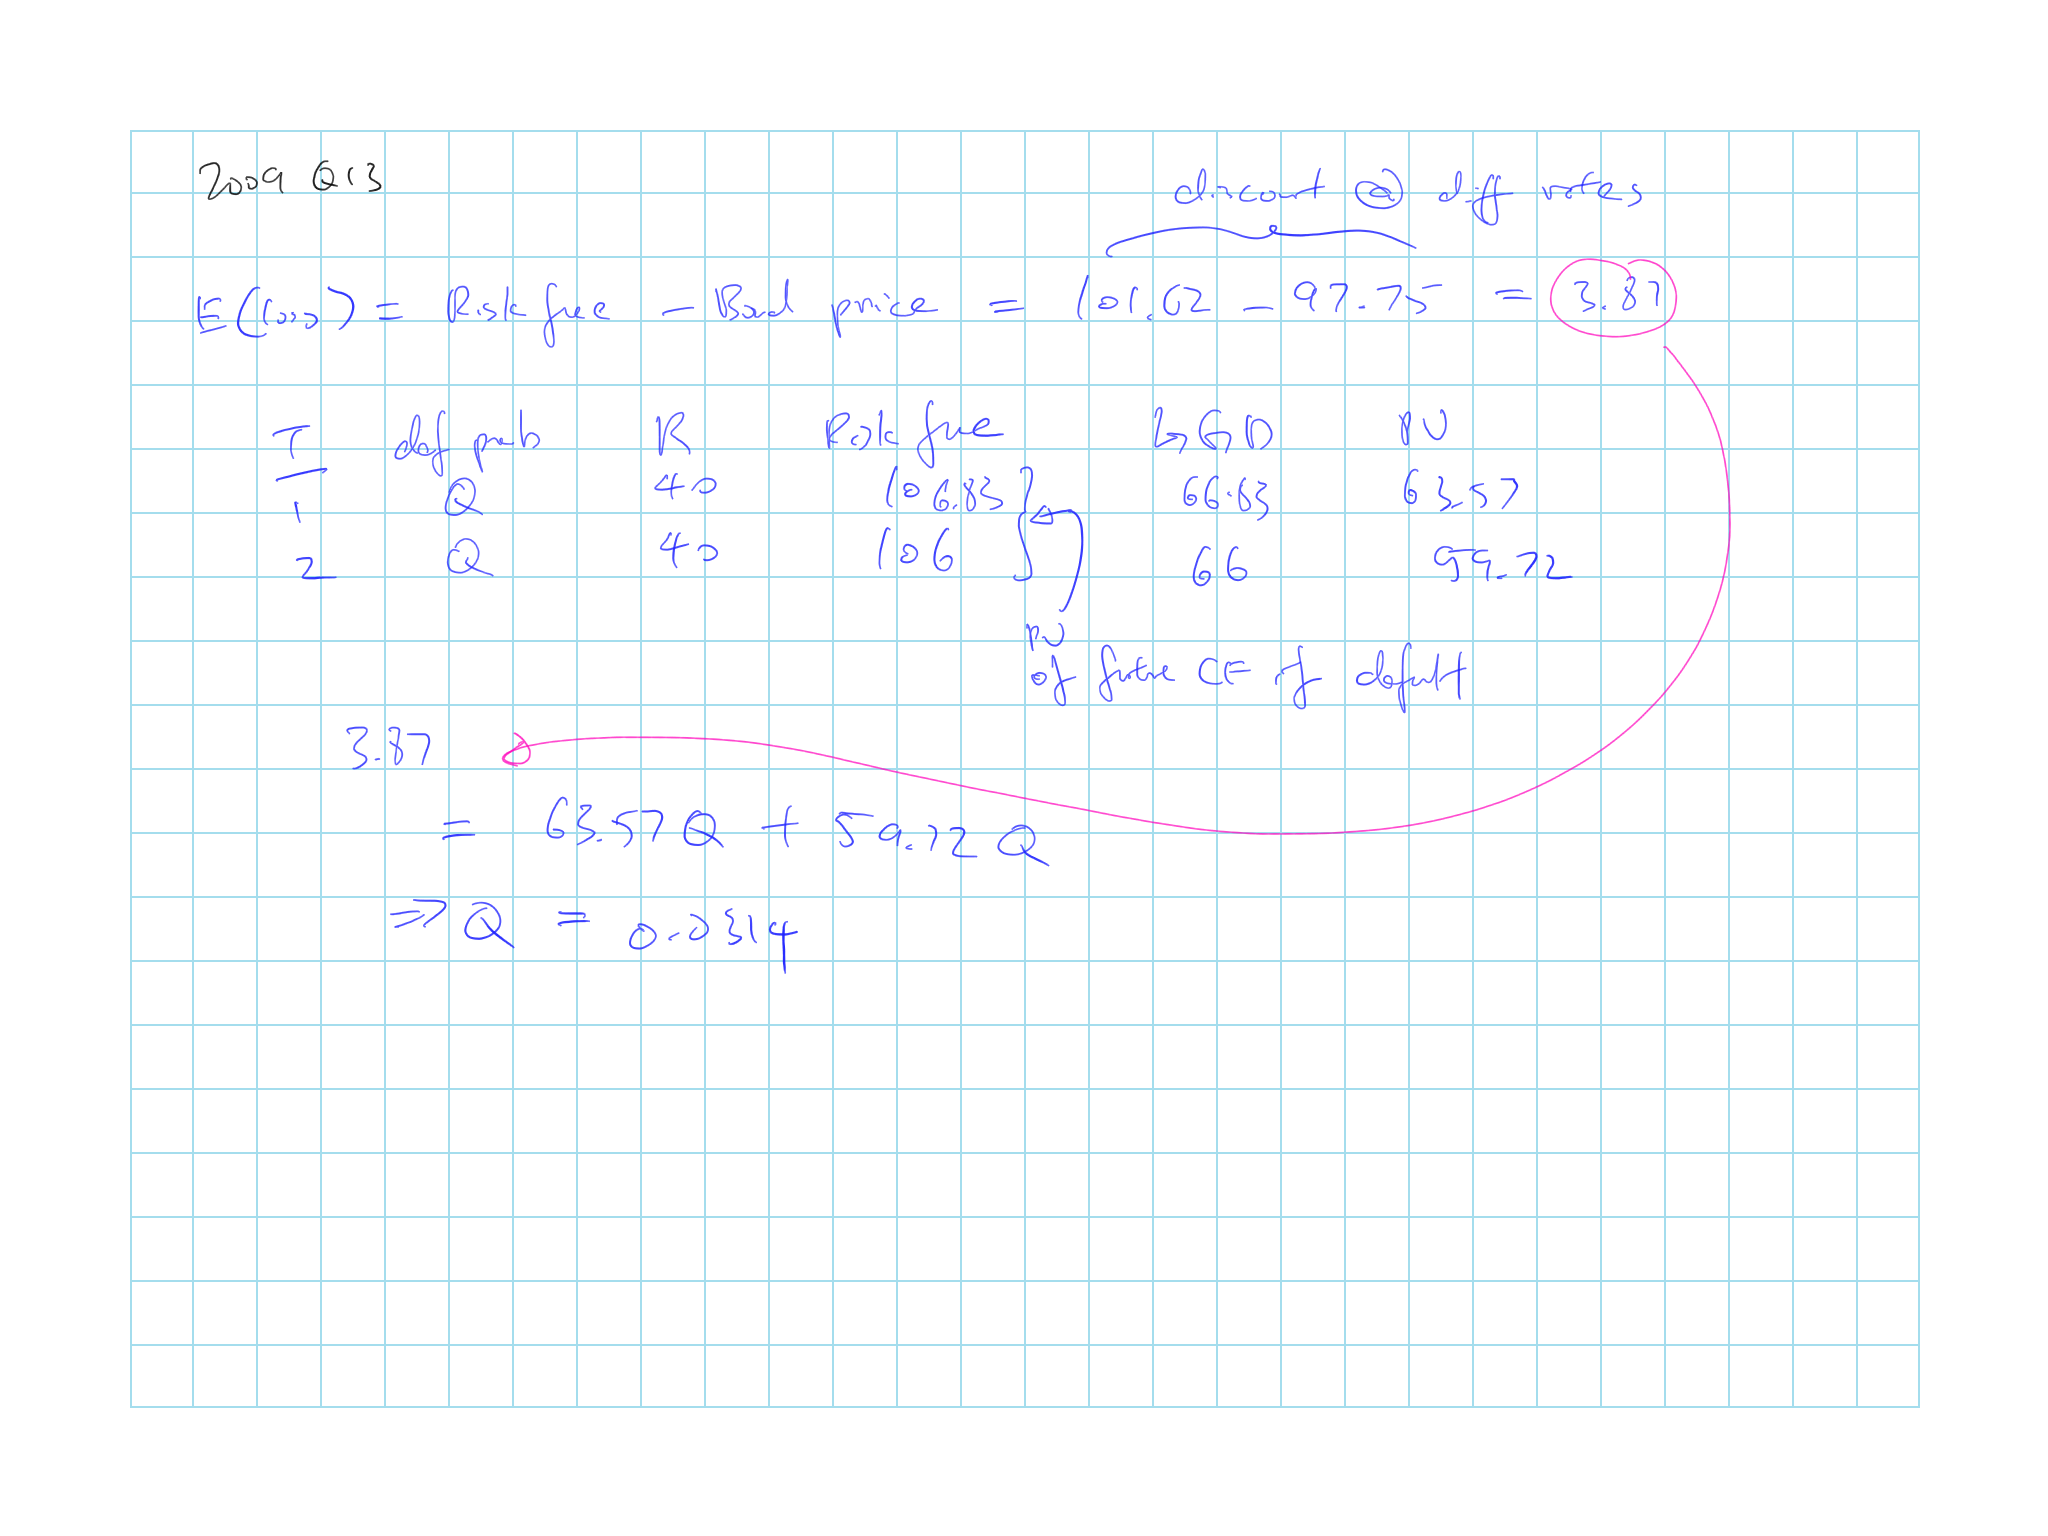 2009 Q13
discount @ diff rates
E(loss) = Risk free - Bond price = 101.62 - 97.75 = 3.87
T def prob R Risk free LGD PV
1 Q 40 106.83 66.83 63.57
2 Q 40 106 66 59.72
PV
of future CF if default
3.87
= 63.57Q + 59.72Q
⇒ Q = 0.0314